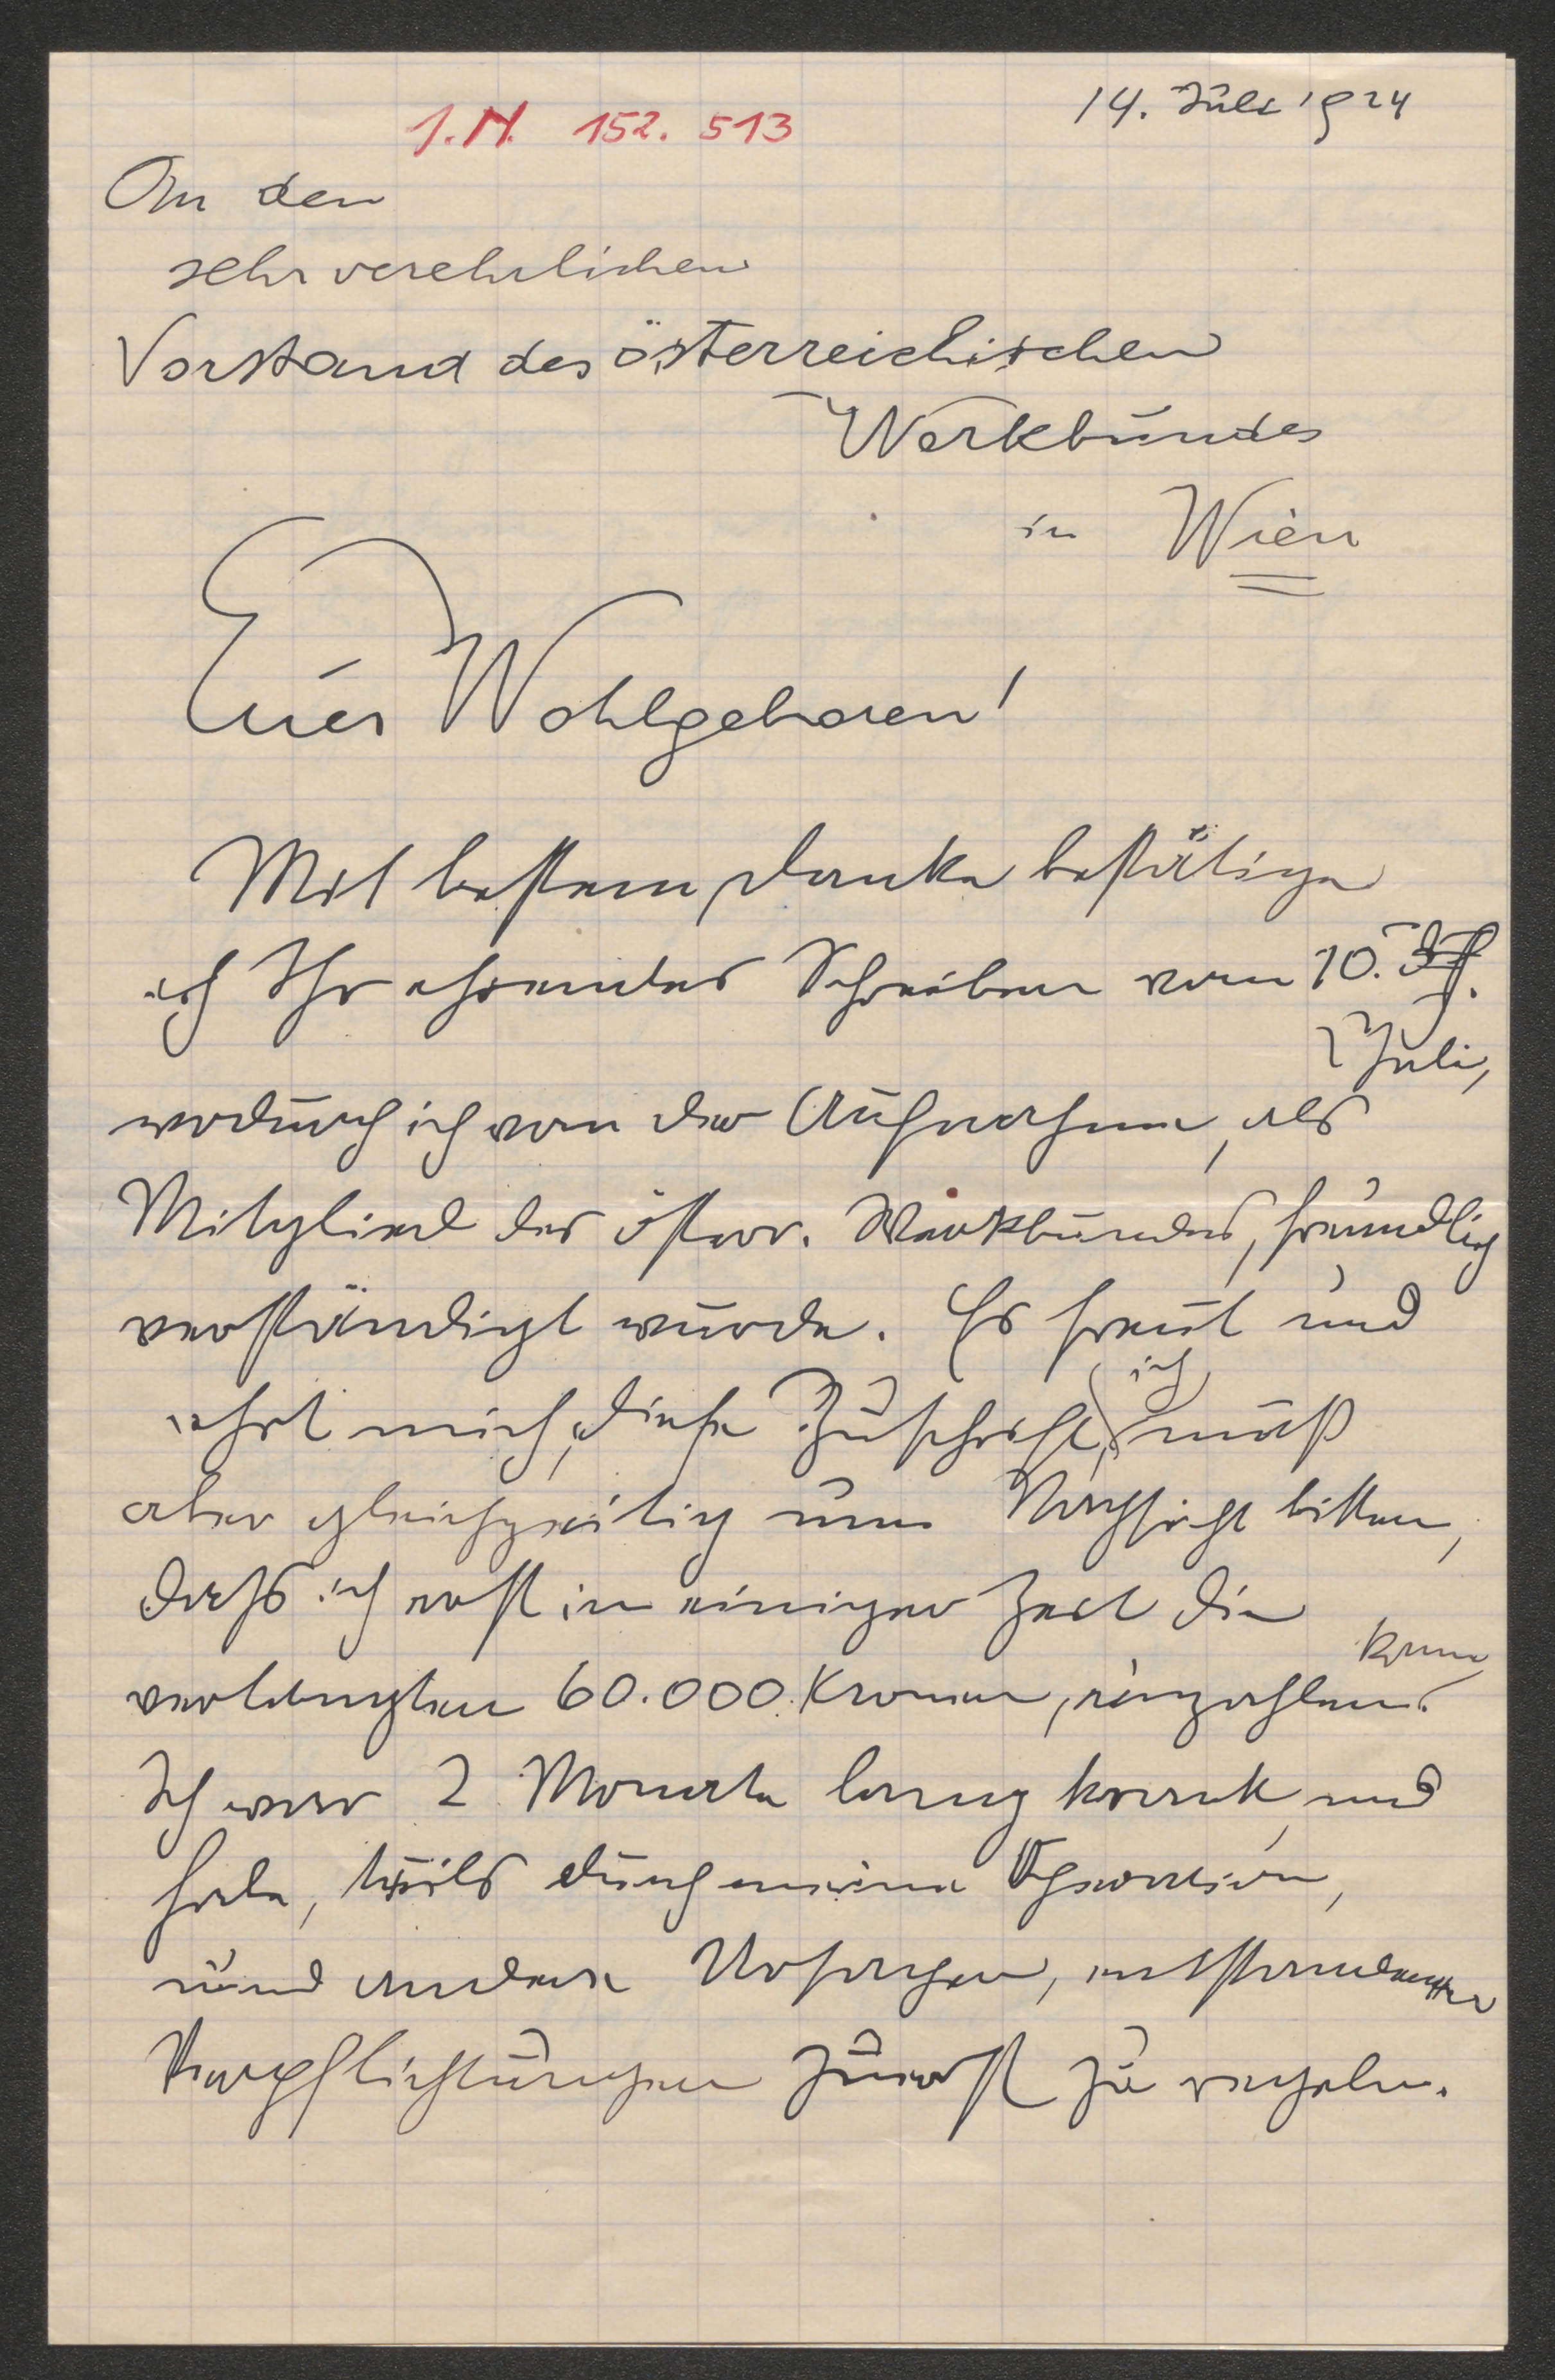 I.N. 152.513
14. Juli 1924
An den
sehr verehrlichen
Vorstand des österreichischen
Werkbundes
in Wien
Euer Wohlgeboren!
Mit bestem Danke bestätige
ich Ihr ehrendes Schreiben vom 10.
Juli,
wodurch ich von der Aufnahme, als
Mitglied des österr. Werkbundes, freundlich
verständigt wurde. Es freut und
ehrt mich, diese Zuschrift, ich muß
aber gleichzeitig um Nachsicht bitten,
dass ich erst in einiger Zeit die
verlangten 60.000 Kronen, einzahlen kann.
Ich war 2 Monate lang krank, und
habe, teils durch meine Operation,
und andere Ursachen, entstandene
Verpflichtungen zuerst zu regeln.